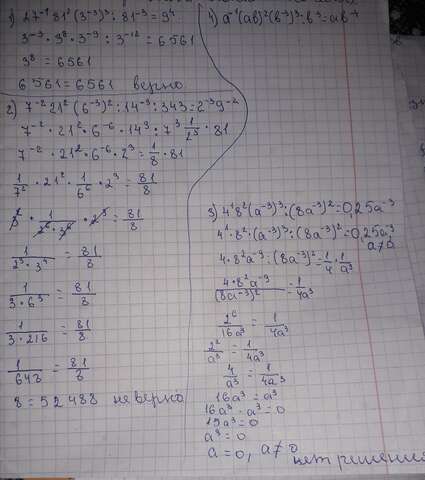 1) 27⁻¹ 81² (3⁻³)³ : 81⁻³ = 9⁴
3⁻³ · 3⁸ · 3⁻⁹ : 3⁻¹² = 6561
3⁸ = 6561
6561 = 6561 верно
2) 7⁻² 21² (6⁻³)² : 14⁻³ : 343 = 2⁻³ 9⁻²
7⁻² · 21² · 6⁻⁶ · 14³ : 7³ 1/2³ · 81
7⁻² · 21² · 6⁻⁶ · 2³ = 1/8 · 81
1/7² · 21² · 1/6⁶ · 2³ = 81/8
3² · 1/(2⁶ · 3⁶) · 2³ = 81/8
1/(2³ · 3⁴) = 81/8
1/(3 · 6³) = 81/8
1/(3 · 216) = 81/8
1/648 = 81/8
8 = 52488 неверно
4) a⁻¹(ab)²(b⁻³)³ : b³ = ab⁻⁴
3) 4¹ 8² (a⁻³)³ : (8a⁻³)² = 0,25a⁻³
4¹ · 8² · (a⁻³)³ : (8a⁻³)² = 0,25a³
a≠0
4 · 8² a⁻⁹ : (8a⁻³)² = 1/4 · 1/a³
(4 · 8² a⁻⁹)/(8a⁻³)² = 1/4a³
2⁶/16a³ = 1/4a³
2²/a³ = 1/4a³
4/a³ = 1/4a³
16a³ = a³
16a³ - a³ = 0
15a³ = 0
a³ = 0
a = 0, a≠0
нет решений